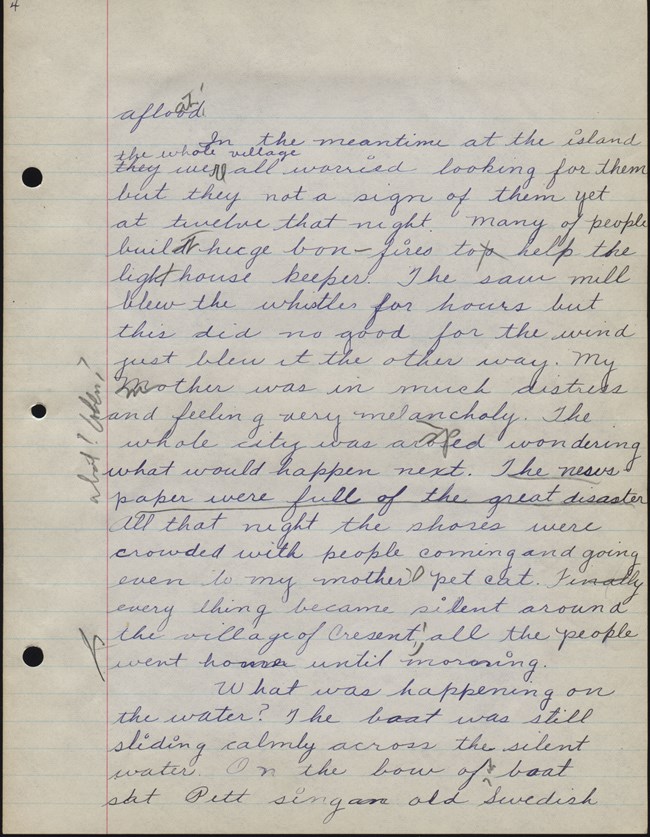 4
afload
at
In the meantime at the island
the whole village
they were all worried looking for them
but they not a sign of them yet
at twelve that night. Many of people
build huge bon-fires to help the
light house keeper. The saw mill
blew the whistles for hours but
this did no good for the wind
just blew it the other way. My
Mother was in much distress
and feeling very melancholy. The
whole city was aroused wondering
what? When?
what would happen next. The news
paper were full of the great disaster
All that night the shores were
crowded with people coming and going
even to my mother pet cat. Finally
every thing became silent around
the village of Cresent, all the people
went home until morning.
What was happening on
the water? The boat was still
sliding calmly across the silent
water. On the bow of boat
sat Pett sing an old Swedish